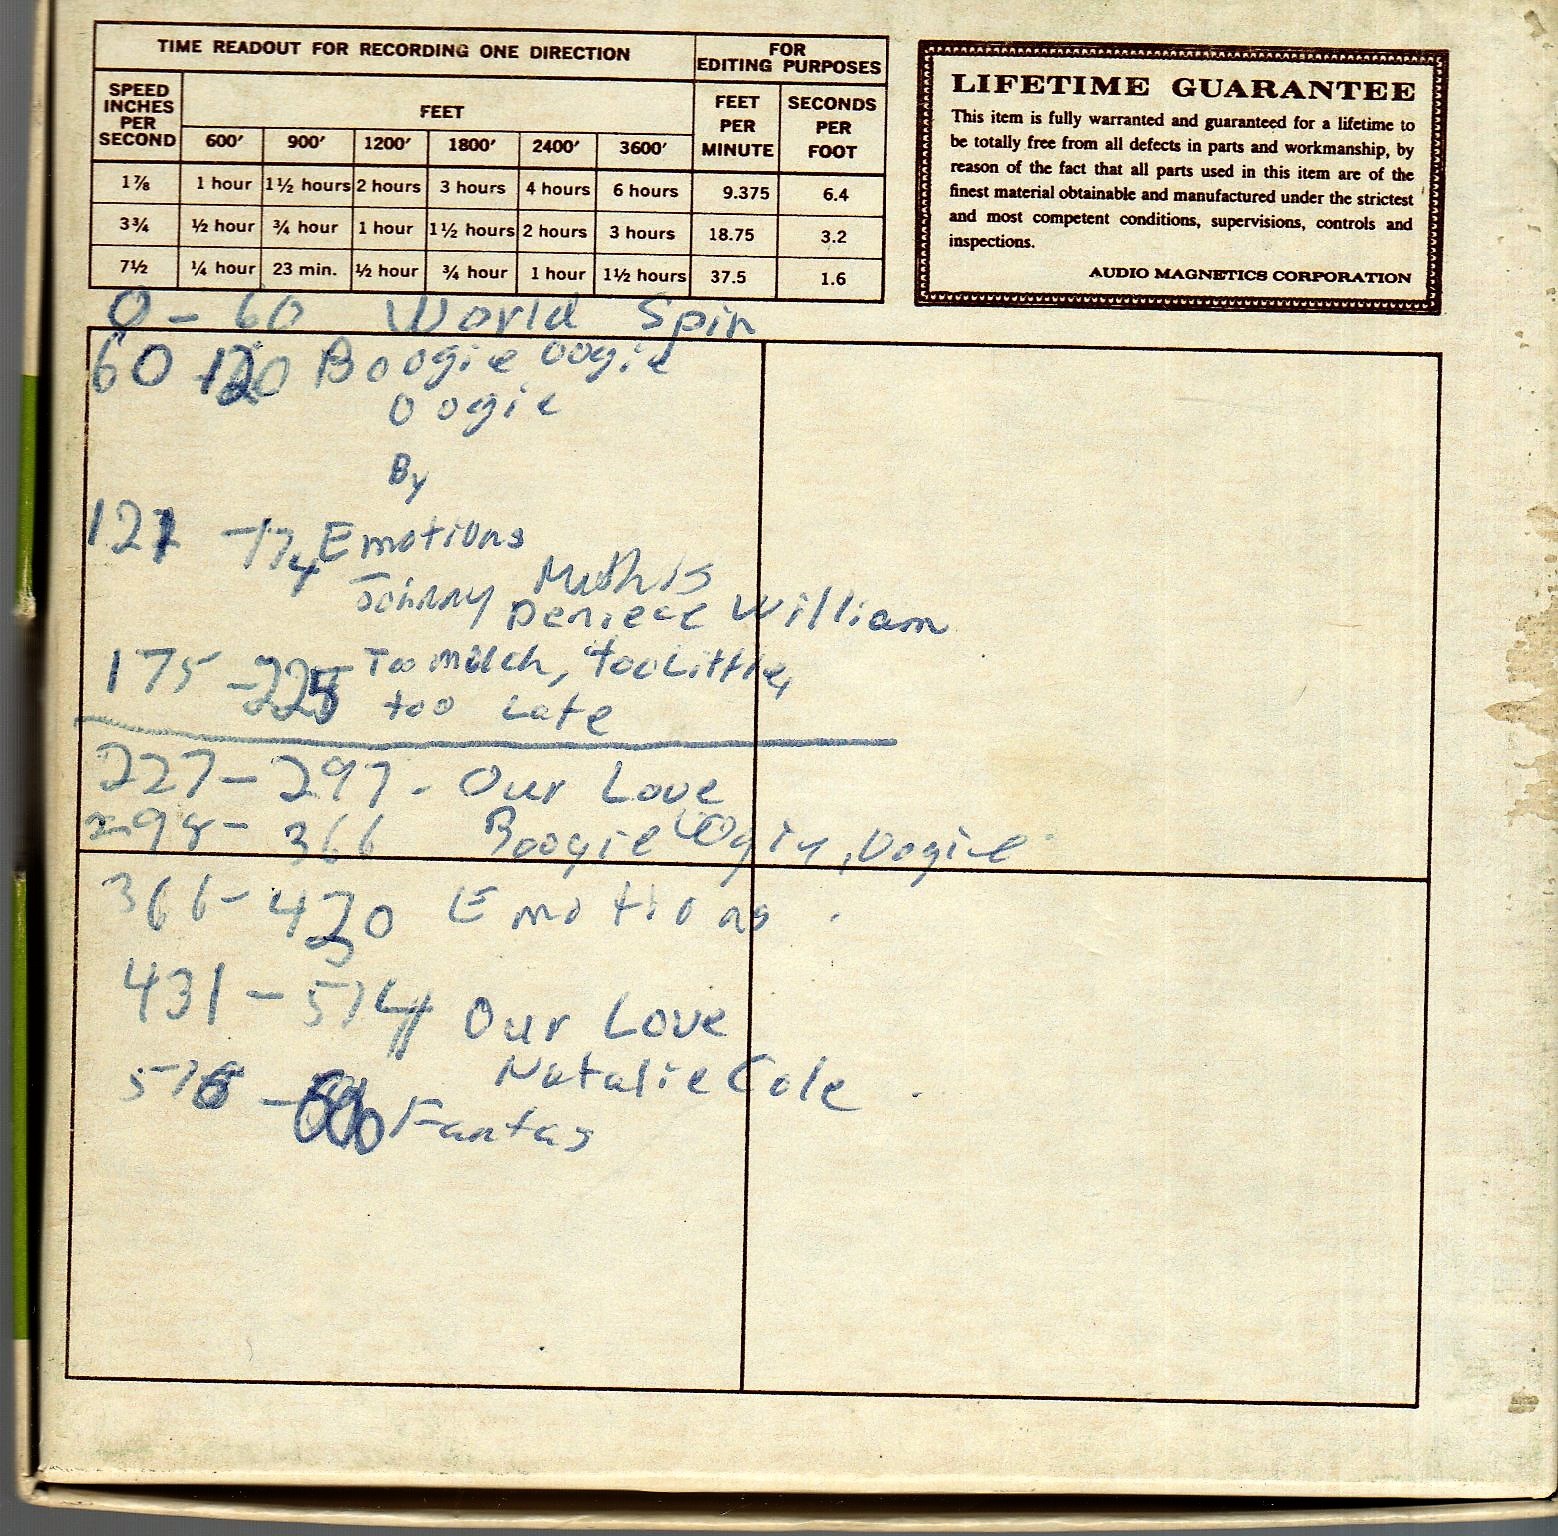 TIME READOUT FOR RECORDING ONE DIRECTION
FOR
EDITING PURPOSES
SPEED
INCHES
PER
SECOND
FEET
FEET
PER
MINUTE
SECONDS
PER
FOOT
600' 900' 1200' 1800' 2400' 3600'
1⅞ 1 hour 1½ hours 2 hours 3 hours 4 hours 6 hours 9.375 6.4
3¾ ½ hour ¾ hour 1 hour 1½ hours 2 hours 3 hours 18.75 3.2
7½ ¼ hour 23 min. ½ hour ¾ hour 1 hour 1½ hours 37.5 1.6
LIFETIME GUARANTEE
This item is fully warranted and guaranteed for a lifetime to
be totally free from all defects in parts and workmanship, by
reason of the fact that all parts used in this item are of the
finest material obtainable and manufactured under the strictest
and most competent conditions, supervisions, controls and
inspections.
AUDIO MAGNETICS CORPORATION
0 - 60 World Spin
60 120 Boogie oogie
oogie
By
121 - 174 Emotions
Johnny Mathis
Deniece William
175 - 225 Too Much, too Little,
too Late
227 - 297 - Our Love
298 - 366 Boogie Oogie, Oogie
366 - 430 Emotions
431 - 574 Our Love
Natalie Cole
576 - Fantas